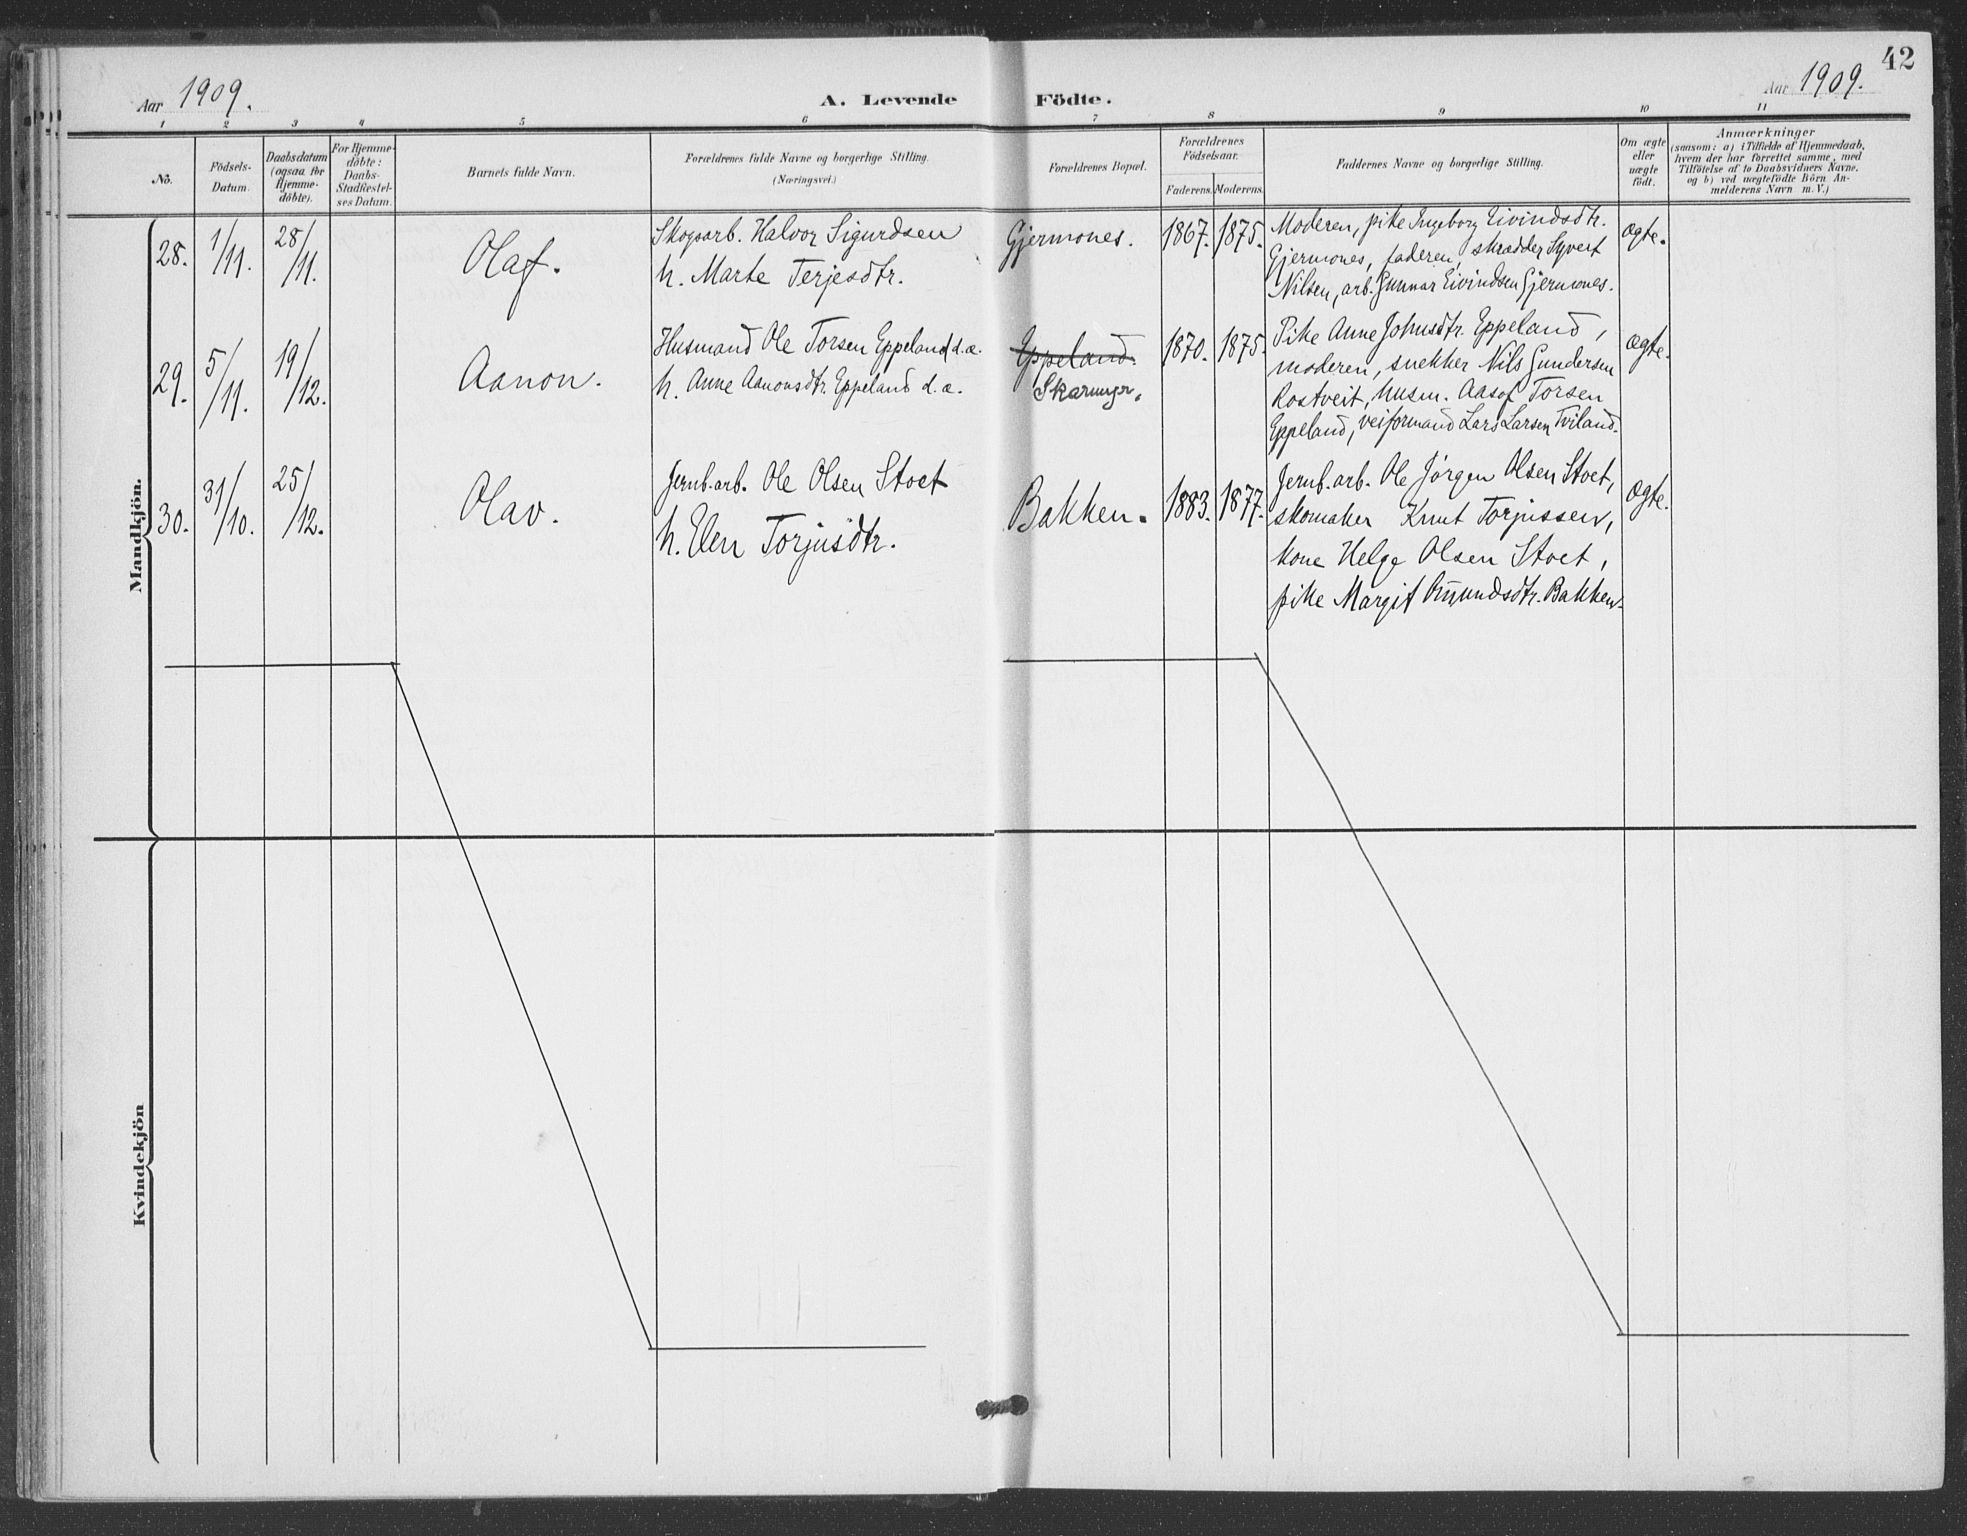 42
Aar 1909. A. Levende Födte. Aar 1909.
1 2 3 4 5 6 7 8 9 10 11
No.
Födsels-
Datum.
Daabsdatum
(ogsaa for
Hjemme-
döbte).
For Hjemme-
döbte:
Daabs-
Stadfestel-
ses Datum.
Barnets fulde Navn.
Forældrenes fulde Navne og borgerlige Stilling.
(Næringsvei.)
Forældrenes Bopæl.
Forældrenes
Födselsaar.
Faderens. Moderens.
Faddernes Navne og borgerlige Stilling.
Om ægte
eller
uægte
födt.
Anmærkninger
(saasom: a) i Tilfælde af Hjemmedaab,
hvem der har forrettet samme, med
Tilföielse af to Daabsvidners Navne.
og b) ved uægtefödte Börn An-
melderens Navn m. V.)
Mandkjön.
28. 1/11. 28/11. Olaf.
Skogsarb. Halvor Sigurdsen
h. Marte Terjesdtr.
Gjermones. 1867. 1875.
Moderen, pike Ingeborg Eivindsdtr.
Gjermones, faderen, skrædder Syvert
Nilsen, arb. Gunnar Eivindsen Gjermones.
ægte.
29. 5/11. 19/12. Aanon.
Husmand Ole Torsen Eppeland d.æ.
h. Anne Aanonsdtr. Eppeland d.æ.
Eppeland.
1870. 1875.
Pike Anne Johnsdtr. Eppeland,
moderen, snekker Nils Gundersen
Rostveit, husm. Aasof Torsen
Eppeland, veiformand Lars Larsen Tviland.
ægte.
30. 31/10. 25/12. Olav.
Jernb.arb. Ole Olsen Stoet
h. Elen Torjusdtr.
Bakken. 1883. 1877.
Jernb.arb. Ole Jørgen Olsen Stoet,
skomaker Knut Torjussen,
kone Helge Olsen Stoet,
pike Margit Omundsdtr. Bakken.
ægte.
Kvindekjön